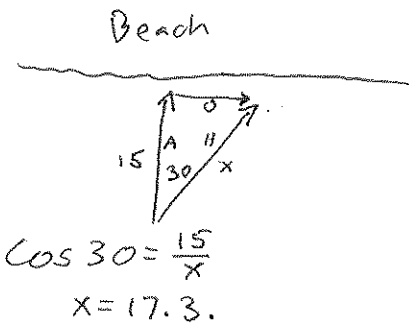 Beach
O
15 A H
30 x
Cos 30 = 15/x
x = 17.3.